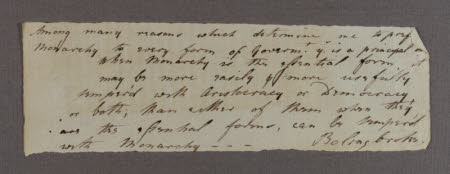 Among many reasons which determine me to pref
Monarchy to every form of Governt. ys. is a principal on
when Monarchy is the essential form, it
may be more easily & more usefully
temper'd with Aristocracy or Democracy
or both, than either of them when they
are the essential forms, can be temper'd
with Monarchy - - - Bolingbroke.